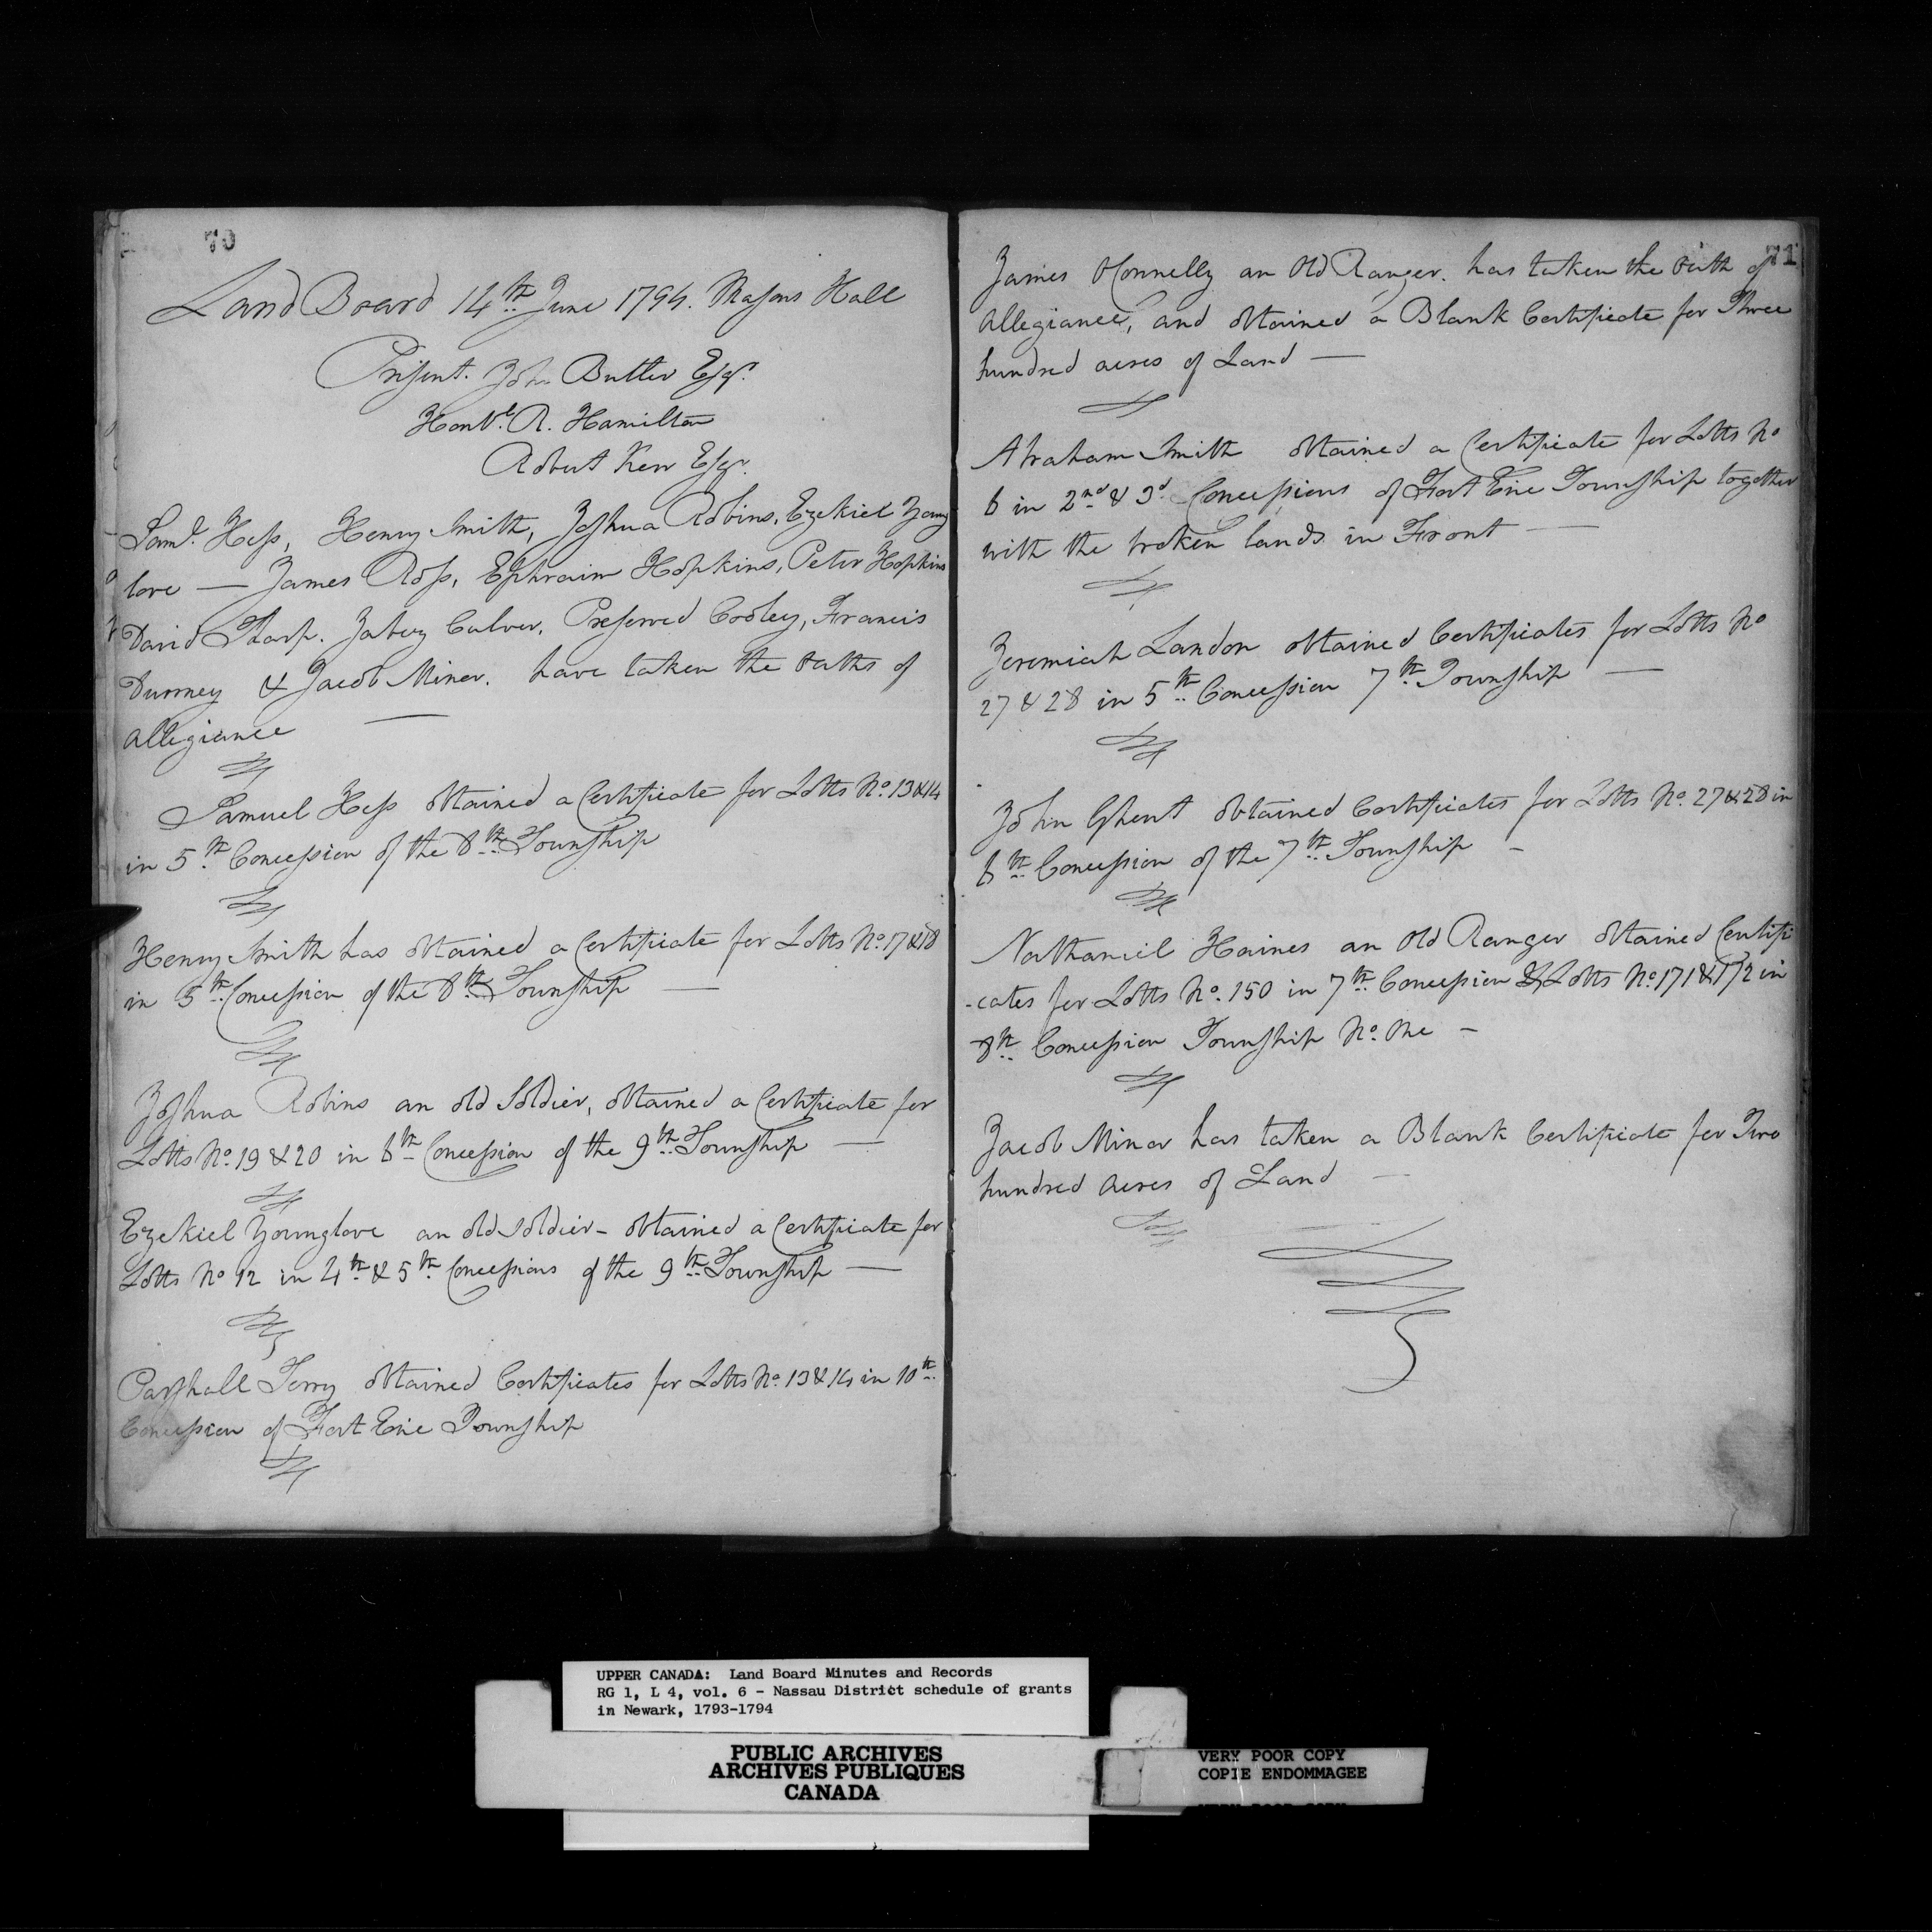 70
Land Board 14th June 1794. Masons Hall
Present. John Butler Esqr.
Honble. R. Hamilton
Robert Kerr Esqr.
Saml. Hess, Henry Smith, Joshua Robins, Ezekiel Young
love — James Ross, Ephraim Hopkins, Peter Hopkins
David Tharp. Jabez Culver. Preserved Cooley, Francis
Durney & Jacob Miner. have taken the oaths of
allegiance —
Samuel Hess obtained a Certificate for Lotts No. 13 & 14
in 5th Concession of the 8th Township
Henry Smith has obtained a Certificate for Lotts No. 17 & 18
in 5th Concession of the 8th Township —
Joshua Robins an old Soldier, obtained a Certificate for
Lotts No. 19 & 20 in 6th Concession of the 9th Township —
Ezekiel Younglove an old soldier - obtained a Certificate for
Lotts No 12 in 4th & 5th Concessions of the 9th Township —
Parshall Terry obtained Certificates for Lotts No. 13 & 14 in 10th
Concession of Fort Erie Township
71
James OConnelly an Old Ranger. has taken the Oath of
allegiance, and obtained a Blank Certificate for Three
hundred acres of Land —
Abraham Smith obtained a Certificate for Lotts No
6 in 2nd & 3d Concessions of Fort Erie Township together
with the broken lands in Front —
Jeremiah Landon obtained Certificates for Lotts No
27 & 28 in 5th Concession 7th Township —
John Ghent obtained Certificates for Lotts No. 27 & 28 in
6th Concession of the 7th Township -
Nathaniel Haines an Old Ranger obtained Certifi
-cates for Lotts No. 150 in 7th Concession & Lotts No. 171 & 172 in
8th Concession Township No. One -
Jacob Minor has taken a Blank Certificate for Two
hundred Acres of Land —
UPPER CANADA: Land Board Minutes and Records
RG 1, L 4, vol. 6 - Nassau District schedule of grants
in Newark, 1793-1794
PUBLIC ARCHIVES
ARCHIVES PUBLIQUES
CANADA
VERY POOR COPY
COPIE ENDOMMAGEE